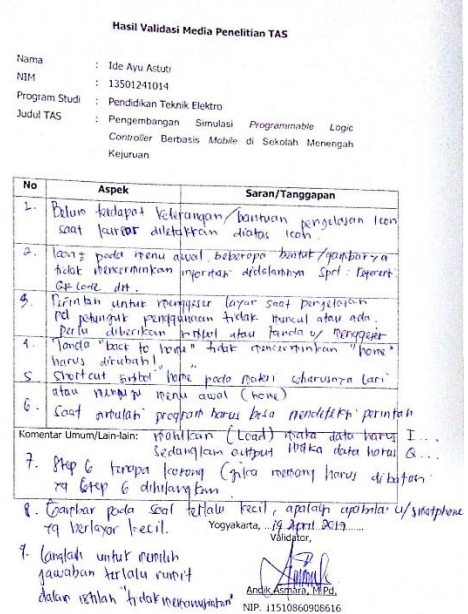 Hasil Validasi Media Penelitian TAS
Nama : Ide Ayu Astuti
NIM : 13501241014
Program Studi : Pendidikan Teknik Elektro
Judul TAS : Pengembangan Simulasi Programmable Logic
Controller Berbasis Mobile di Sekolah Menengah
Kejuruan
No Aspek Saran/Tanggapan
1. Belum terdapat keterangan/bantuan penjelasan Icon
saat kursor diletakkan diatas icon.
2. Icon2 pada menu awal, beberapa bentuk/gambarnya
tidak mencerminkan informasi didalamnya
QR Code
3. Perintah untuk menggeser layar saat penjelasan
pd petunjuk penggunaan tidak muncul atau ada.
perlu diberikan simbol atau tanda u/ menggeser
4. Tanda "back to home" tidak mencerminkan "home"
harus dirubah!
5. Shortcut simbol "home" pada materi seharusnya lari
atau menuju menu awal (home)
6. Saat simulasi program harus bisa mendeteksi perintah
Komentar Umum/Lain-lain: (Load) maka data harus I...
Sedangkan output maka data harus Q...
7. Step 6 kenapa kosong (jika memang harus
yg Step 6 dihilangkan
8. Gambar pada soal terlalu kecil, apalagi apabila u/ smartphone
yg berlayar kecil.
Yogyakarta, 19 April 2019
Validator,
9. Langkah untuk memilih
jawaban terlalu rumit
dalam istilah "tidak
Andik Asmara, M.Pd.
NIP. 11510860908616